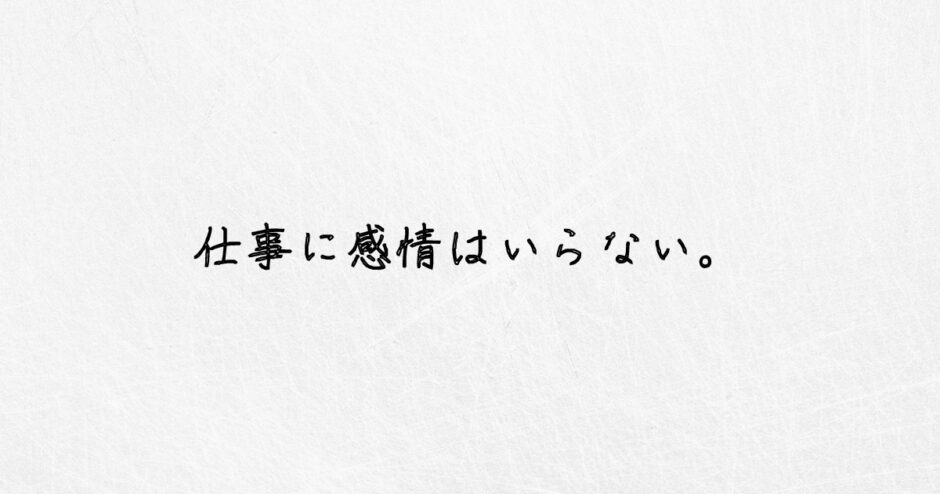 仕事に感情はいらない。